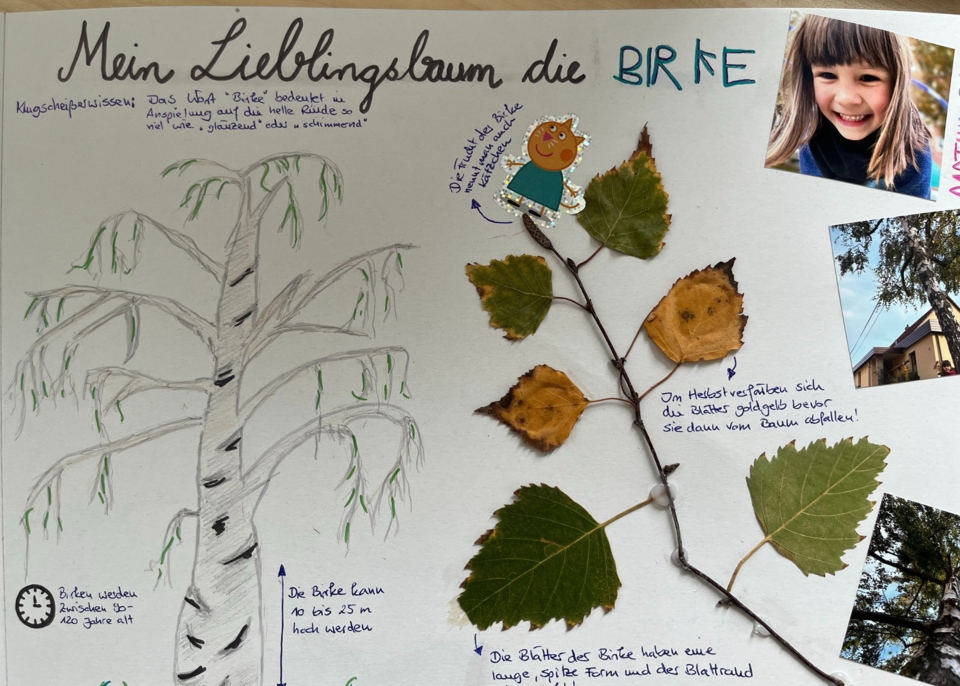 Mein Lieblingsbaum die BIRKE
Klugscheißerwissen: Das Wort "Birke" bedeutet in
Anspielung auf die helle Rinde so
viel wie „glänzend" oder „schimmernd"
Die Frucht der Birke
nennt man auch
Kätzchen
Im Herbst verfärben sich
die Blätter goldgelb bevor
sie dann vom Baum abfallen!
Birken werden
zwischen 90-
120 Jahre alt
Die Birke kann
10 bis 25 m
hoch werden
Die Blätter der Birke haben eine
lange, spitze Form und der Blattrand